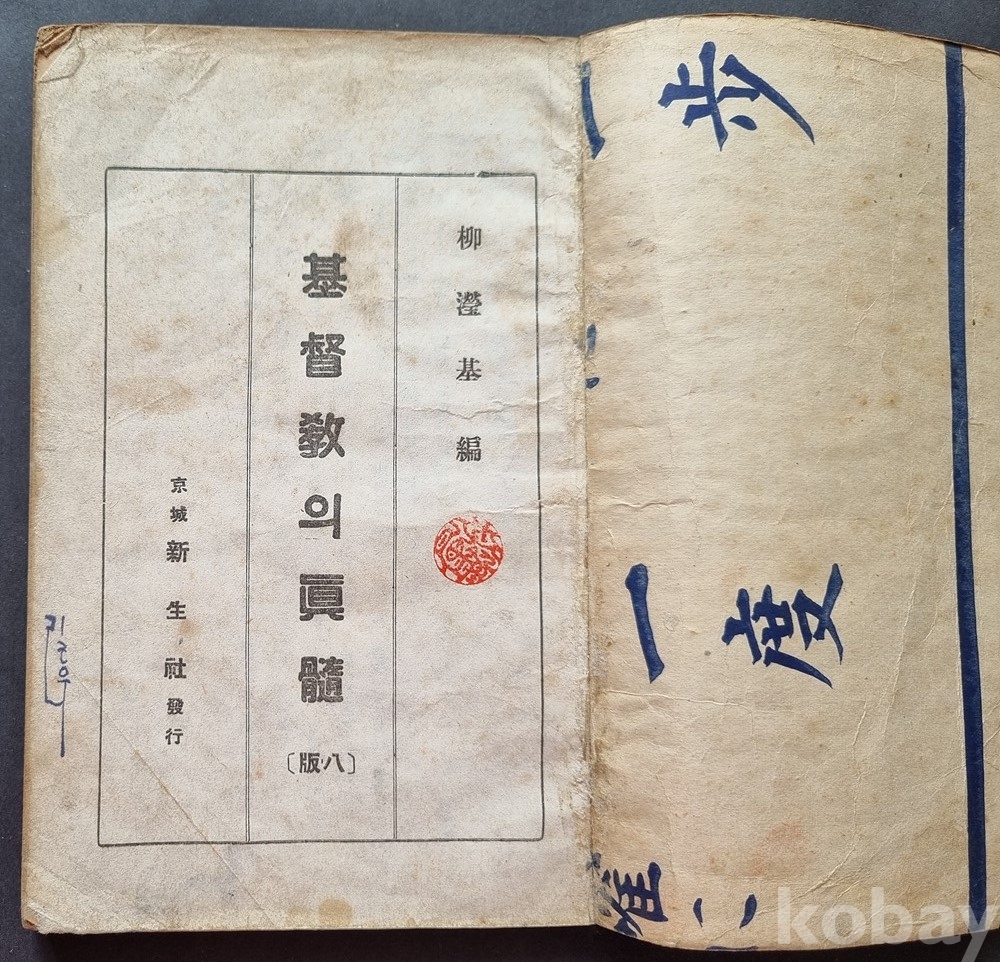 柳瀅基編
基督敎의眞髓
〔八版〕
京城 新生社發行
一步
一度
kobay